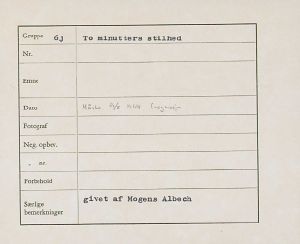 Gruppe 6j To minutters stilhed
Nr.
Emne
Dato
Fotograf
Neg. opbev.
„ nr.
Forbehold
Særlige bemærkninger givet af Mogens Albech